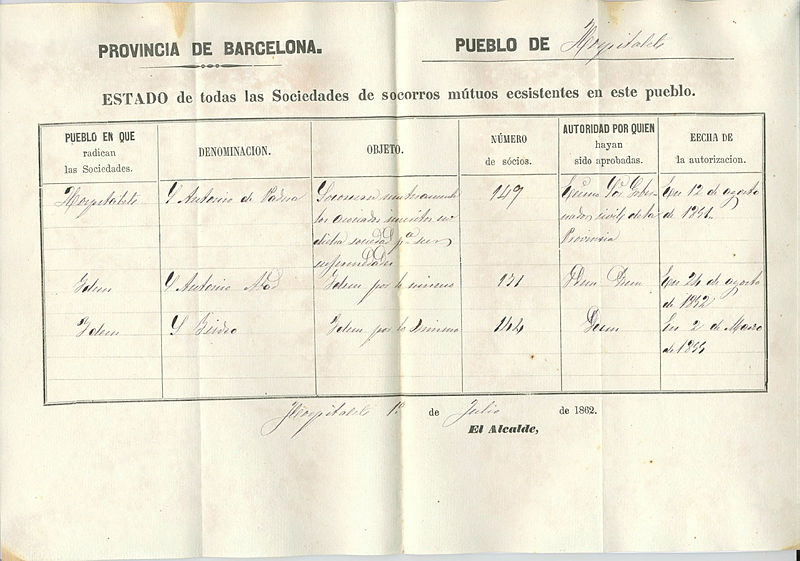 PROVINCIA DE BARCELONA.
PUEBLO DE Hospitalet
ESTADO de todas las Sociedades de socorros mútuos ecsistentes en este pueblo.
PUEBLO EN QUE
radican
las Sociedades.
DENOMINACION.
OBJETO.
NÚMERO
de sócios.
AUTORIDAD POR QUIEN
hayan
sido aprobadas.
EECHA DE
la autorizacion.
Hospitalet
S Antonio de Padua
Socorrerse mutuamente
los asociados inscritos en
dicha sociedad pª sus
enfermedades
149
Ecsmo Sor Gober
nador civil de la
Provincia
En 12 de agosto
de 1851
Idem
S Antonio
Idem por lo mismo
131
Idem Idem
En 24 de agosto
de 1852
Idem
S Isidro
Idem por lo mismo
144
Idem
En 2 de Marzo
de
Hospitalet 1º de Julio de 1862.
El Alcalde,